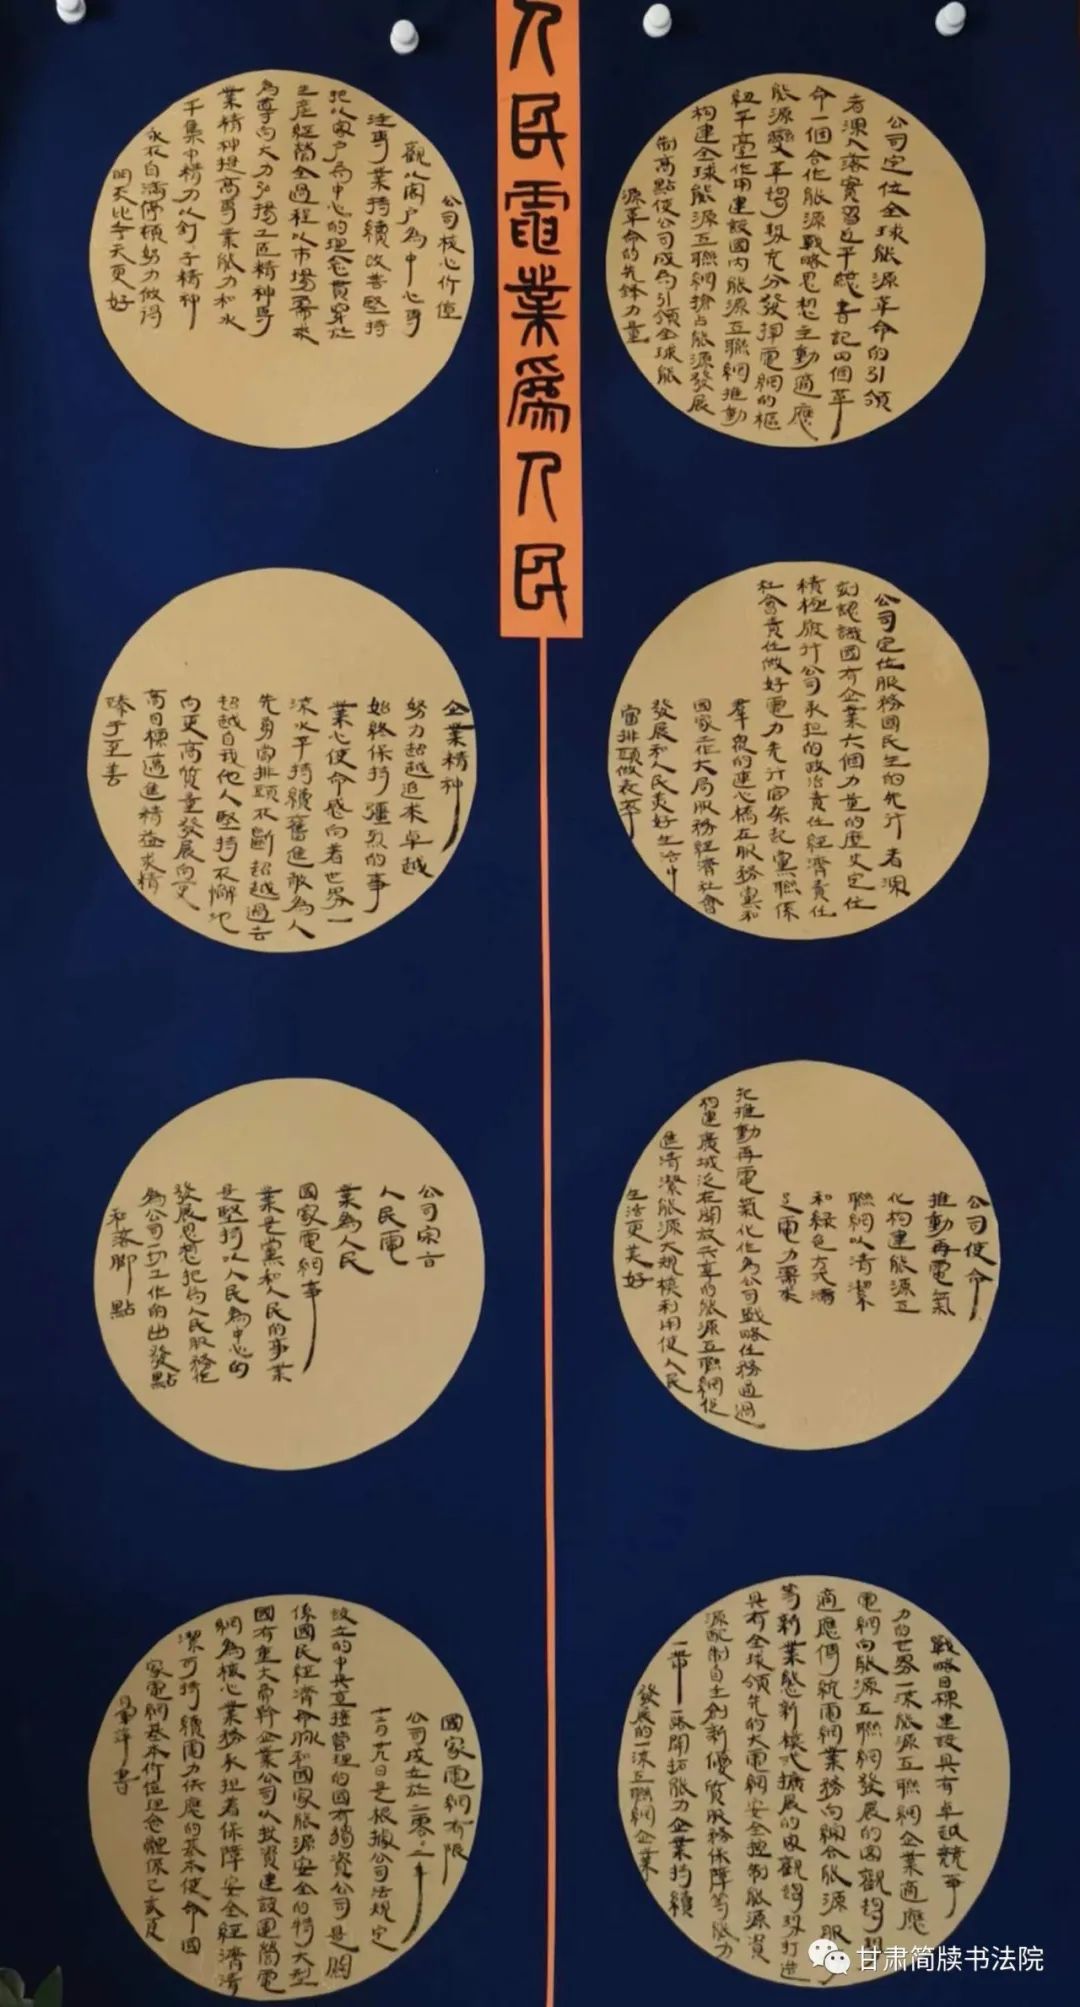 人民電業為人民
公司定位全球能源革命的引領
者深入落實習近平總書記四個革
命一個合作能源戰略思想主動適應
能源變革趨勢充分發揮電網的樞
紐平臺作用建設國內能源互聯網推動
構建全球能源互聯網搶占能源發展
制高點使公司成為引領全球能
源革命的先鋒力量
公司定位服務國民生的先行者深
刻認識國有企業六個力量的歷史定位
積極履行公司承担的政治責任經濟責任
社會責任做好電力先行官架起黨聯係
羣眾的連心橋在服務黨和
國家工作大局服務經濟社會
發展和人民美好生活中
當排頭做表率
公司使命
推動再電氣
化構建能源互
聯網以清潔
和綠色方式滿
足電力需求
把推動再電氣化作為公司戰略任務通過
構建廣域泛在開放共享的能源互聯網促
進清潔能源大規模利用使人民
生活更美好
戰略目標建設具有卓越競爭
力的世界一流能源互聯網企業適應
電網向能源互聯網發展的客觀趨勢
適應傳統電網業務向綜合能源服
等新業態新模式擴展的客觀趨勢打造
具有全球領先的大電網安全控制能源資
源配制自主創新優質服務保障等能力
一帶一路開拓能力企業持續
發展的一流互聯網企業
公司核心價值
觀以客戶為中心專
注專業持續改善堅持
把以客戶為中心的理念貫穿於
生產經營全過程以市場需求
為導向大力弘揚工匠精神專
業精神提高專業能力和水
平集中精力以釘子精神
永不自滿停頓努力做得
明天比今天更好
企業精神
努力超越追求卓越
始終保持彊烈的事
業心使命感向着世界一
流水平持續奮進敢為人
先勇當排頭不斷超越過去
超越自我他人堅持不懈地
向更高質量發展向更
高目標邁進精益求精
臻于至善
公司宗旨
人民電
業為人民
國家電網事
業是黨和人民的事業
是堅持以人民為中心的
發展思想把為人民服務作
為公司一切工作的出發點
和落腳點
國家電網有限
公司成立於二零〇二年
十二月廿九日是根據公司法規定
設立的中央直接管理的國有獨資公司是關
係國民經濟命脉和國家能源安全的特大型
國有重大骨幹企業公司以投資建設運營電
網為核心業務承担着保障安全經濟清
潔可持續電力供應的基本使命國
家電網基本價值理念體係己亥夏
書
甘肃简牍书法院